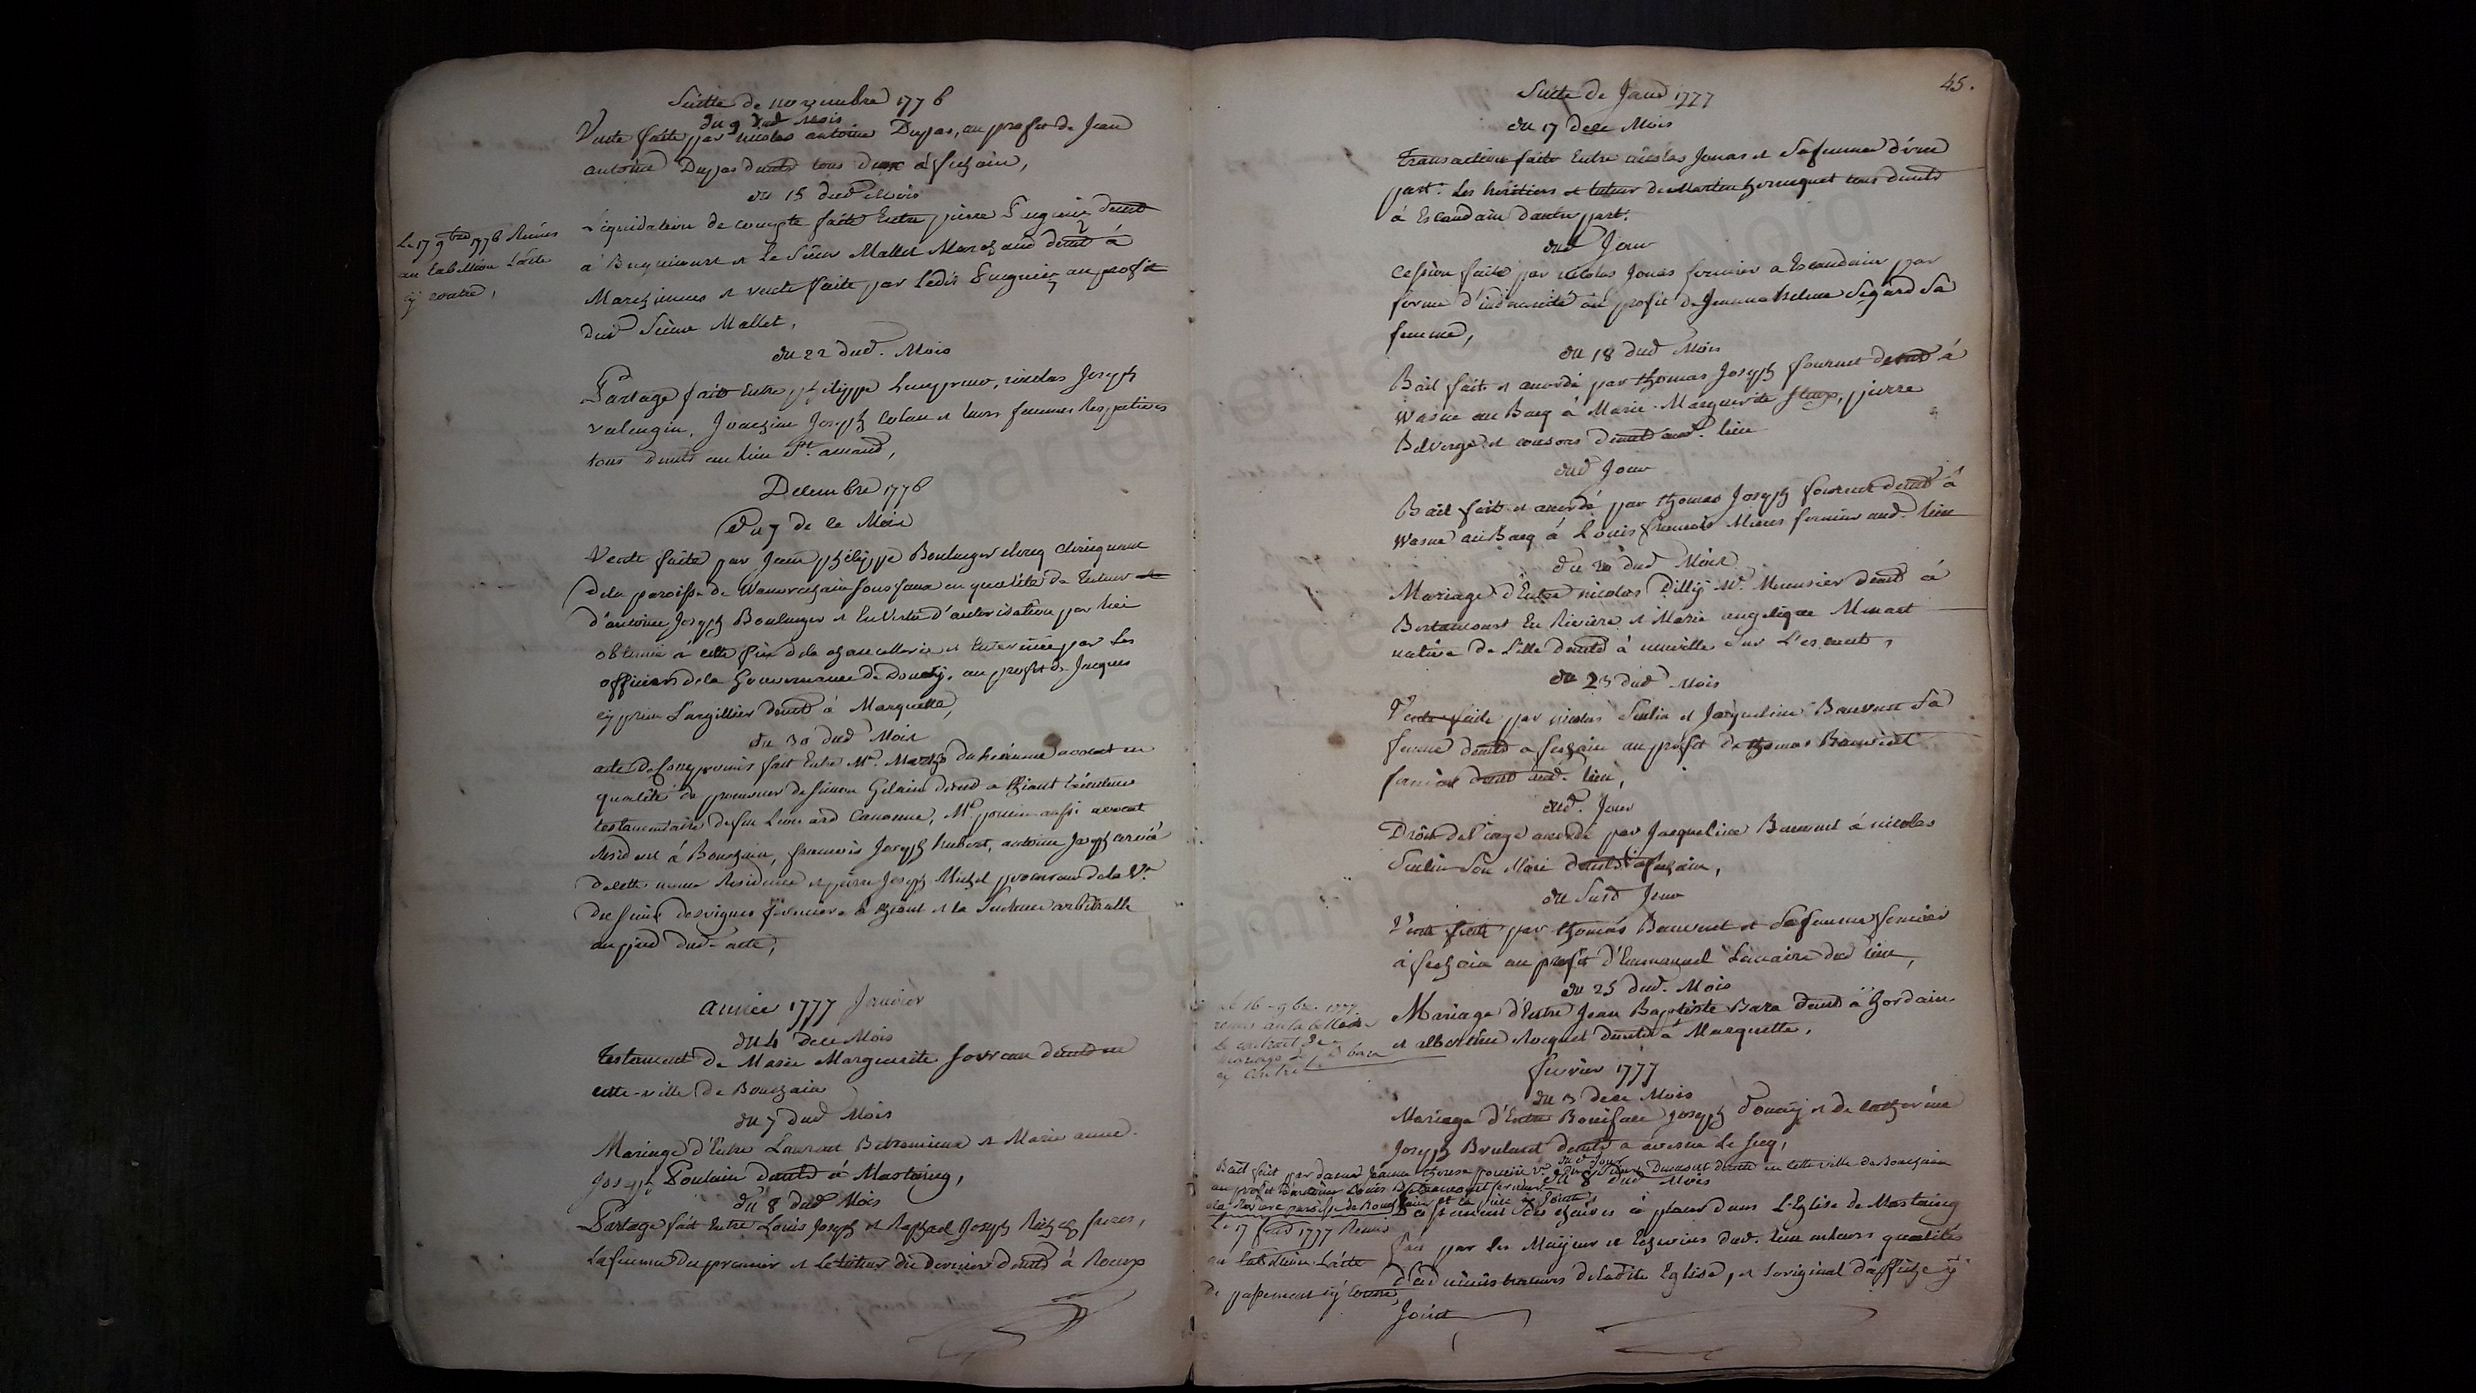 Suitte de novembre 1776
du 9 dud Mois
Vente faite par nicolas antoine Dupas, au profit de Jean
antoine Dupas demts tous deux à fechain,
du 15 dud Mois
Liquidation de compte faite Entre pierre demt
à Bugnicourt et Le Sieur Mallet Marchand demt à
Marchiennes et vente faite par Ledit au profit
dud Sieur Mallet,
Le 17 9bre 1776 Remis
au tabellion L'acte
cy contre,
du 22 dud. Mois
Partage fait Entre philippe nicolas Joseph
valengin, Joachim Joseph Colau et leurs femmes Respectives
tous demts au lieu St. amand,
Decembre 1776
Du 7 de ce Mois
Vente faite par Jean philippe Boulanger clercq
dela paroisse de Wavrechain sous faux en qualité de Tuteur
d'antoine Joseph Boulanger et En Vertu d'autorisation par lui
obtenue a cette fin dela chancellerie et Enterinée par Les
officiers dela Gouvernance de Douay, au profit de Jacques
cyprien Largillier demt à Marquette,
du 30 dud Mois
acte de Compromis fait Entre Me. avocat en
qualité de procureur de Simon Gelain demt a thiant Exécuteur
testamentaire de feu Leonard Canonne, Me. aussi avocat
Resident à Bouchain, francois Joseph hubert, antoine Joseph
de cette meme Residence et pierre Joseph Michel procureur dela Ve.
du Sieur desvignes fermiere à thiant et la Sentence arbitralle
au pied dud. acte,
année 1777 Janvier
du 4 de ce Mois
Testament de Marie Marguerite demt en
cette ville de Bouchain
du 7 dud Mois
Mariage d'Entre Laurent Betremieux et Marie anne
Joseph Poulain demts à Mastaing,
du 8 dud Mois
Partage fait Entre Louis Joseph et Raphael Joseph Richez freres,
La femme du premier et Le tuteur du dernier demts à Roeux
45.
Suitte de Janer 1777
du 17 de ce Mois
Transaction faite Entre nicolas Jonas et Sa femme d'une
part. Les heritiers et tuteur de Martin tous demts
à Escaudain d'autre part.
dud Jour
Cession faite par nicolas Jonas fermier a Escaudain par
forme d'indemnité au profit de Jeanne helene Segard Sa
femme,
du 18 dud Mois
Bail fait et accordé par thomas Joseph fournet demt à
Wasne au Bacq à Marie Marguerite pierre
Belverge et consors demts aud. lieu
dud Jour
Bail fait et accordé par thomas Joseph fournet demt à
Wasne au Bacq à Louis francois fermier aud. lieu
du 20 dud Mois
Mariage d'Entre nicolas Dilly Me. Meunsier demt à
En Riviere et Marie angelique Minart
native de Lille demte à neuville Sur L'escaut,
du 23 dud Mois
Vente faite par nicolas Senlin et Jacqueline Bauvent Sa
femme demts a fechain au profit de thomas Bauvent
demt aud. lieu,
dud. Jour
Droit de viage accordé par Jacqueline Bauvent à nicolas
Senlin Son Mari demts à fechain,
du Susd Jour
Vente faite par thomas Bauvent et Sa femme fermier
à fechain au profit d'Emmanuel Lemaire dud lieu,
du 25 dud. Mois
Mariage d'Entre Jean Baptiste Bara demt à hordain
et albertine Rocquet demte à Marquette,
Le 16 9bre. 1777
remis au tabellion
le contract de
mariage de J. B bara
cy contre
fevrier 1777
du 3 de ce Mois
Mariage d'Entre Boniface Joseph Douay et de Catherine
Joseph Brulant demts a avesne Le Secq,
dud Jour
Bail fait par dame Jeanne therese Ve. du Sieur demte en cette ville de Bouchain
au profit d'antoine Louis fermier
du 8 dud Mois
Passement des chaires à placer dans L'Eglise de Mastaing
fait par les Mayeur et Echevins dud. lieu en leurs qualités
d'administrateurs de ladite Eglise, et L'original d'affiche y
Joint
Le 17 1777 Remis
au tabellion L'acte
de passement cy contre